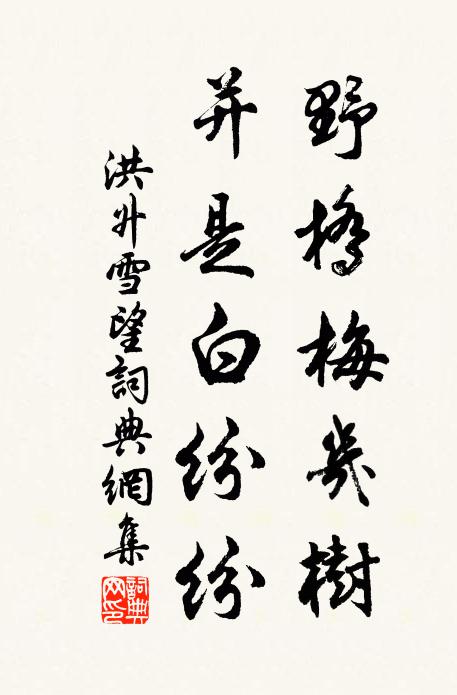 野橋梅幾樹
并是白紛紛
洪升雪望詞典網集
詞典网印